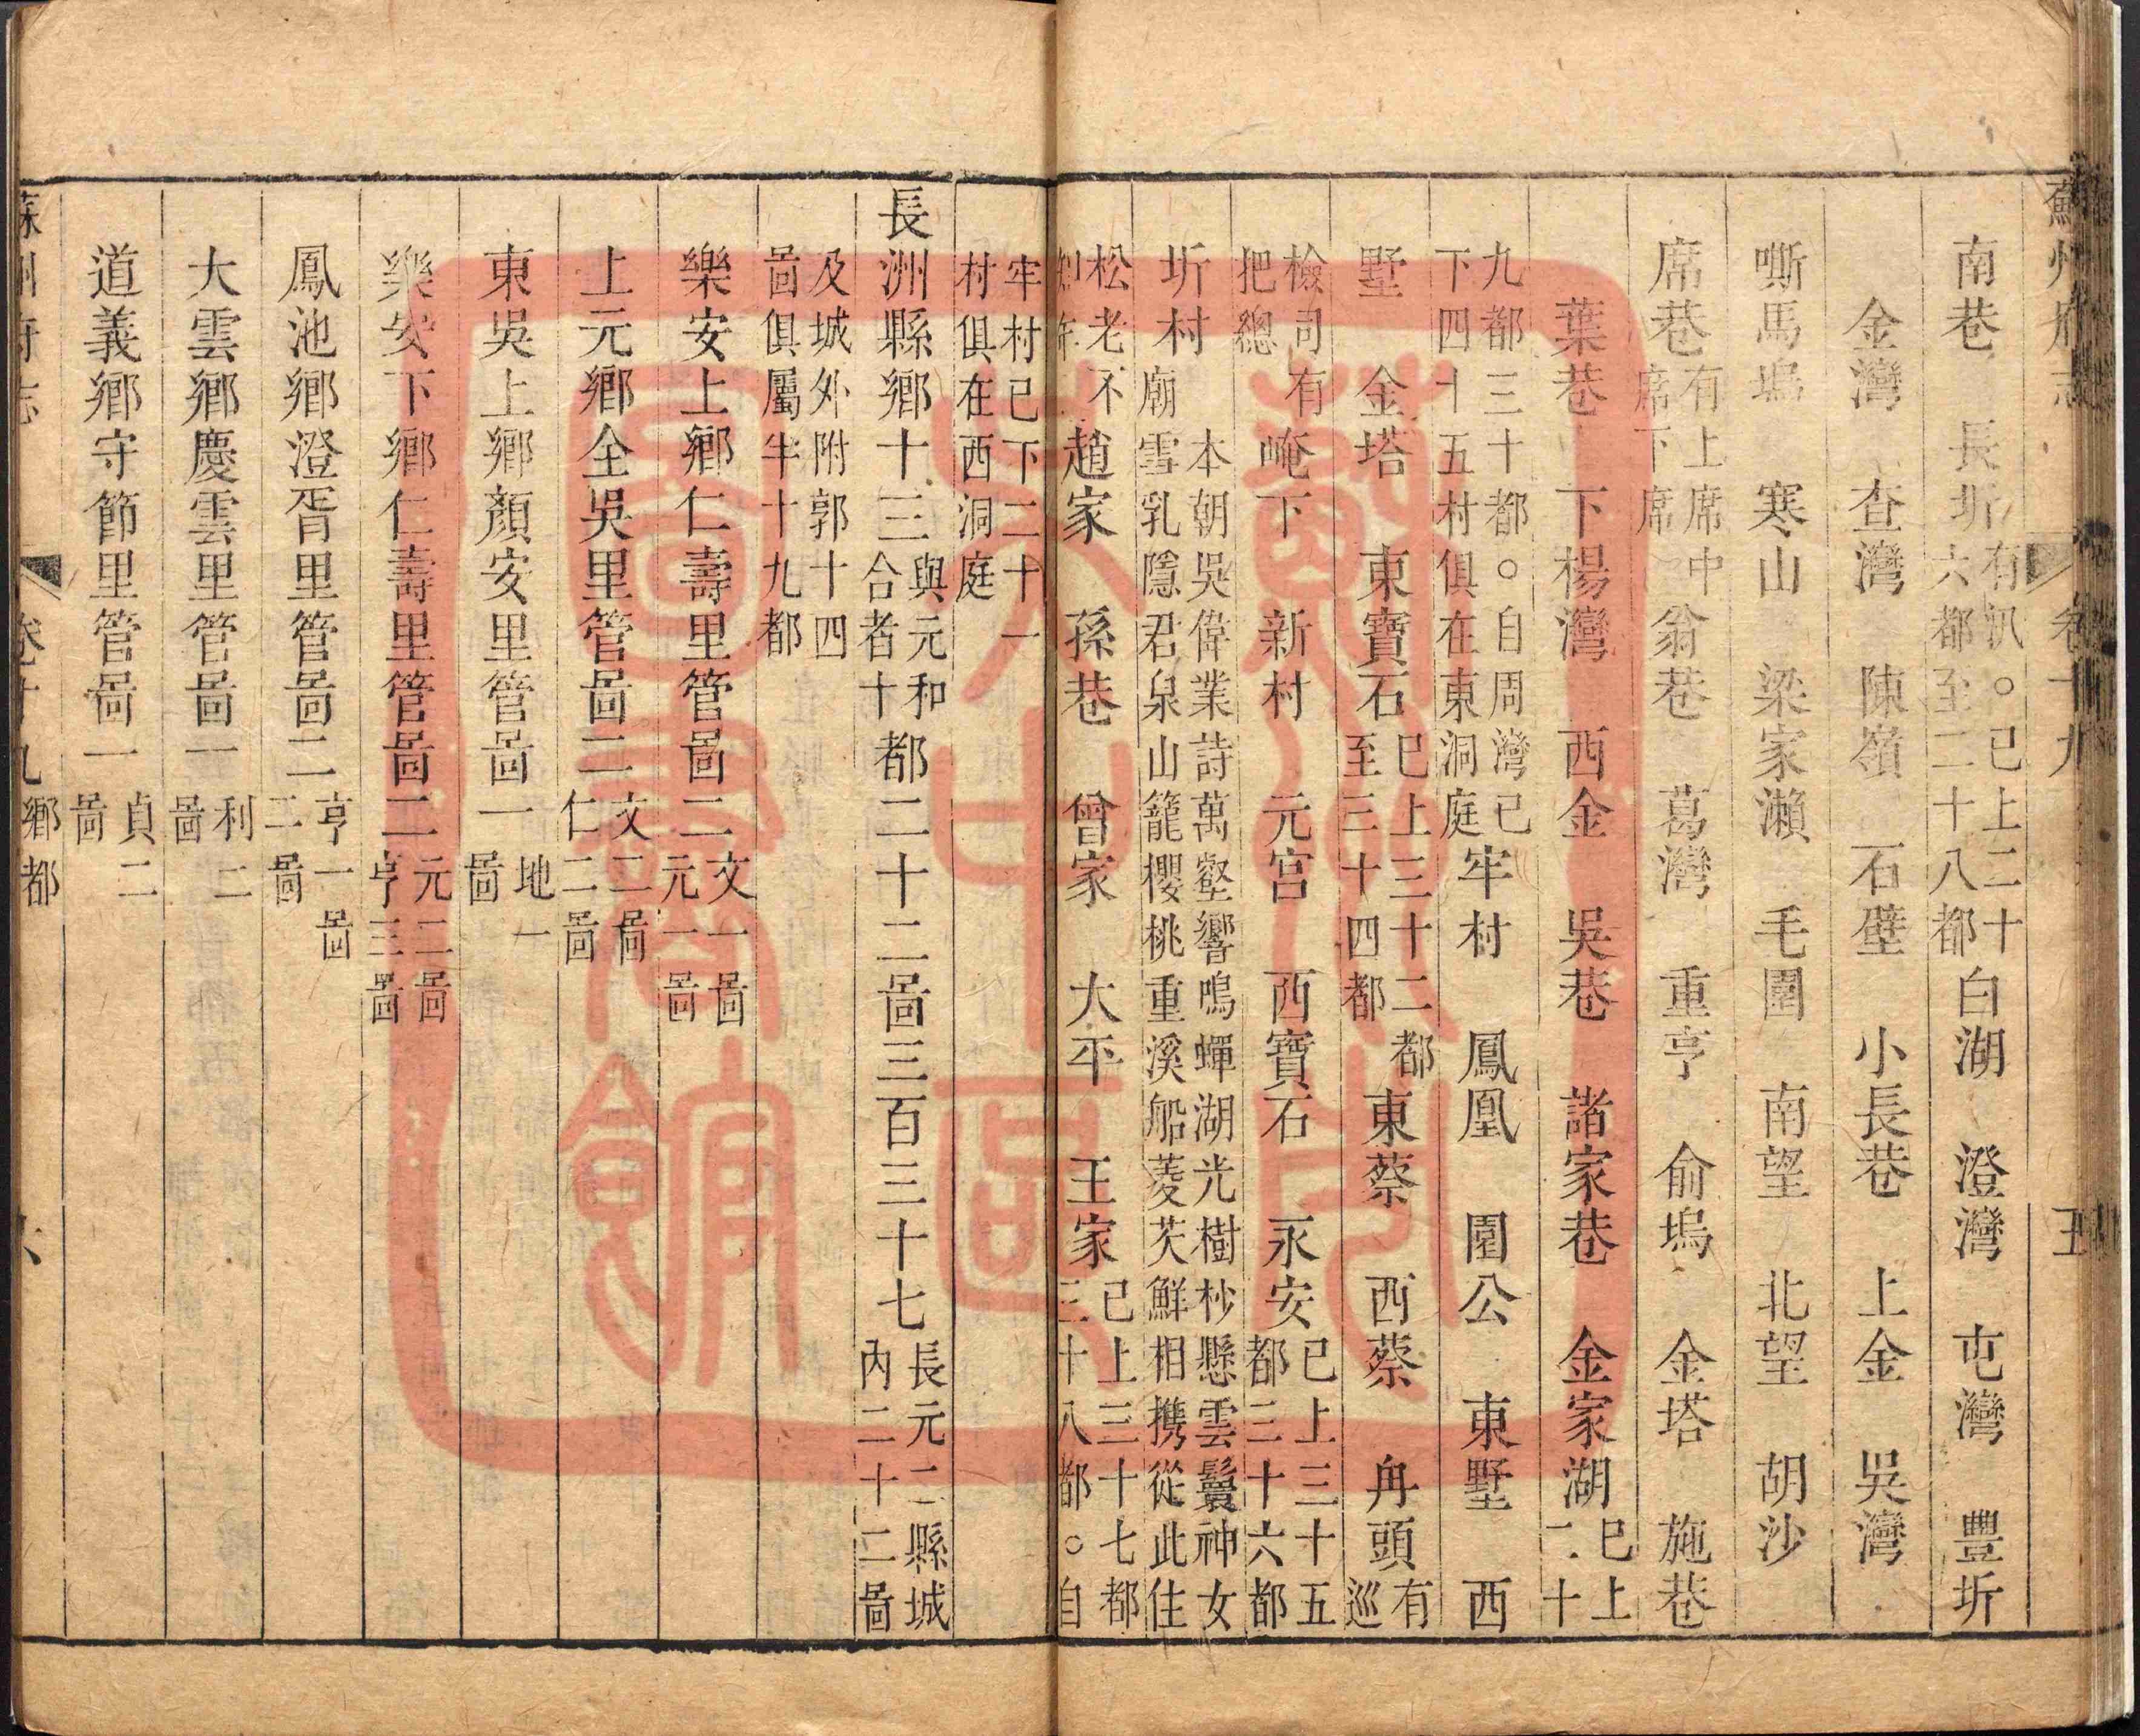 蘇州府志 卷十九 五
南巷 長圻有汛○已上二十六都至二十八都白湖 澄灣 屯灣 豐圻
金灣 查灣 陳嶺 石壁 小長巷 上金 吳灣
嘶馬塢 寒山 梁家瀨 毛園 南望 北望 胡沙
席巷有上席中席下席 翁巷 葛灣 重亨 俞塢 金塔 施巷
葉巷 下楊灣 西金 吳巷 諸家巷 金家湖已上二十
九都三十都○自周灣已下四十五村俱在東洞庭牢村 鳳凰 園公 東墅 西
墅 金塔 東寶石已上三十二都至三十四都東蔡 西蔡 甪頭有巡
檢司有把總 崦下 新村 元宮 西寶石 永安已上三十五都三十六都
圻村廟 本朝吳偉業詩萬壑響鳴蟬湖光樹杪懸雲鬟神女雪乳隱君泉山籠櫻桃重溪船菱芡鮮相攜從此住
松老不 趙家 孫巷 曾家 大平 王家已上三十七都三十八都○自
牢村已下二十一村俱在西洞庭
長洲縣鄉十三與元和合者十都二十二啚三百三十七長元二縣城內二十二啚
及城外附郭十四啚俱屬半十九都
樂安上鄉仁壽里管啚二文一啚元一啚
上元鄉全吳里管啚二文二啚仁二啚
東吳上鄉顏安里管啚一地一啚
樂安下鄉仁壽里管啚二元二啚亨三啚
鳳池鄉澄胥里管啚二亨一啚二啚
大雲鄉慶雲里管啚一利二啚
道義鄉守節里管啚一貞二啚
蘇州府志 卷十九 鄉都 六